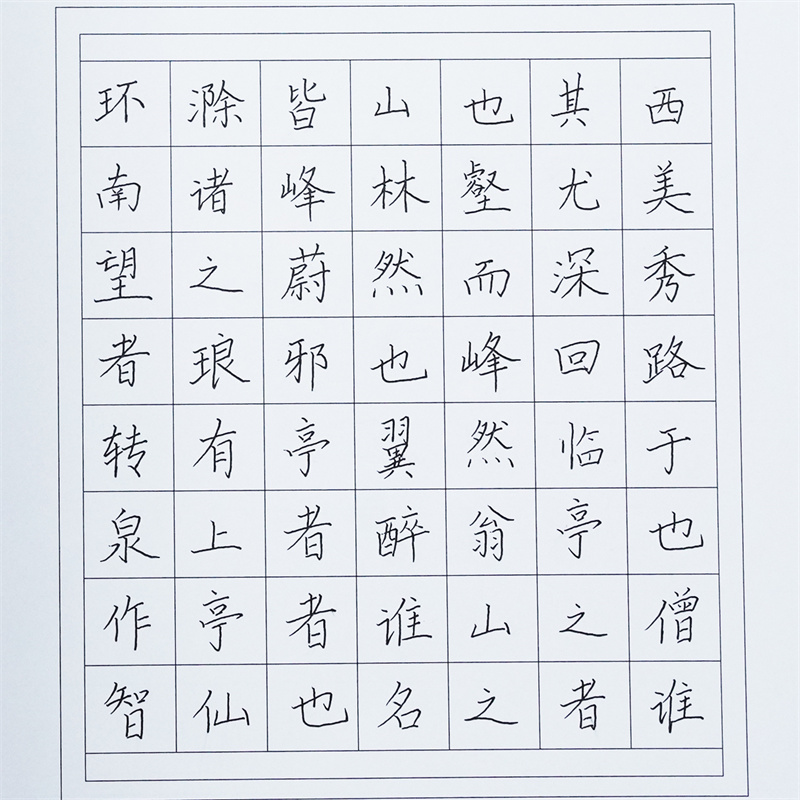 环滁皆山也其西
南诸峰林壑尤美
望之蔚然而深秀
者琅邪也峰回路
转有亭翼然临于
泉上者醉翁亭也
作亭者谁山之僧
智仙也名之者谁